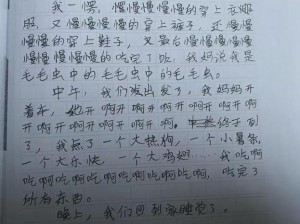 我一愣，慢慢慢慢慢的穿上衣
服，又慢慢慢慢的穿上裤子，还慢慢
慢慢慢的穿上鞋子，又最后慢慢慢慢慢
慢慢慢慢慢的吃完了饭，我妈说我是
毛毛虫中的毛毛虫中的毛毛虫。
中午，我们出发了，我妈妈开
着车，开啊开啊开啊开啊开啊开
啊开啊开啊开啊开啊，终于到
了，我点了一个大热狗，一个小薯条，
一个大可乐，一个大鸡翅……我吃啊
吃啊吃啊吃啊吃啊吃啊吃啊，吃完了
所有东西。
晚上，我们回到家睡觉了。